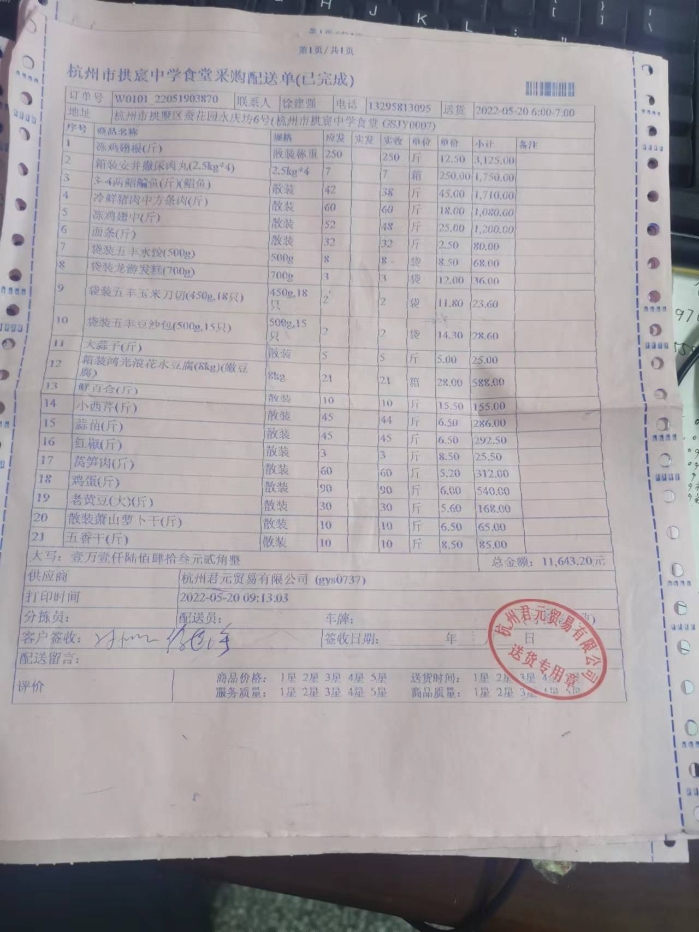 第1页/共1页
杭州市拱宸中学食堂采购配送单(已完成)
订单号 W0101_22051903870 联系人 徐建强 电话 13295813095 送货 2022-05-20 6:00-7:00
地址 杭州市拱墅区蚕花园永庆坊6号(杭州市拱宸中学食堂 GSJY0007)
序号 商品名称 规格 应发 实发 实收 单位 单价 小计 备注
1 冻鸡翅根(斤) 散装称重 250 250 斤 12.50 3,125.00
2 箱装安井撒尿肉丸(2.5kg*4) 2.5kg*4 7 7 箱 250.00 1,750.00
3 3-4两鲳鳊鱼(斤)(鲳鱼) 散装 42 38 斤 45.00 1,710.00
4 冷鲜猪肉中方条肉(斤) 散装 60 60 斤 18.00 1,080.00
5 冻鸡翅中(斤) 散装 52 48 斤 25.00 1,200.00
6 面条(斤) 散装 32 32 斤 2.50 80.00
7 袋装五丰水饺(500g) 500g 8 8 袋 8.50 68.00
8 袋装龙游发糕(700g) 700g 3 3 袋 12.00 36.00
9 袋装五丰玉米刀切(450g,18只) 450g,18只 2 2 袋 11.80 23.60
10 袋装五丰豆沙包(500g,15只) 500g,15只 2 2 袋 14.30 28.60
11 大蒜子(斤) 散装 5 5 斤 5.00 25.00
12 箱装鸿光浪花水豆腐(8kg)(嫩豆腐) 8kg 21 21 箱 28.00 588.00
13 鲜百合(斤) 散装 10 10 斤 15.50 155.00
14 小西芹(斤) 散装 45 44 斤 6.50 286.00
15 蒜苗(斤) 散装 45 45 斤 6.50 292.50
16 红椒(斤) 散装 3 3 斤 8.50 25.50
17 莴笋肉(斤) 散装 60 60 斤 5.20 312.00
18 鸡蛋(斤) 散装 90 90 斤 6.00 540.00
19 老黄豆(大)(斤) 散装 30 30 斤 5.60 168.00
20 散装萧山萝卜干(斤) 散装 10 10 斤 6.50 65.00
21 五香干(斤) 散装 10 10 斤 8.50 85.00
大写: 壹万壹仟陆佰肆拾叁元贰角整 总金额: 11,643.20元
供应商 杭州君元贸易有限公司 (gys0737)
打印时间 2022-05-20 09:13:03
分拣员: 配送员: 车牌:
客户签收: 签收日期: 年 日
配送留言:
评价 商品价格: 1星 2星 3星 4星 5星 送货时间: 1星 2星 3星
服务质量: 1星 2星 3星 4星 5星 商品质量: 1星 2星 3星
杭州君元贸易有限公司
送货专用章